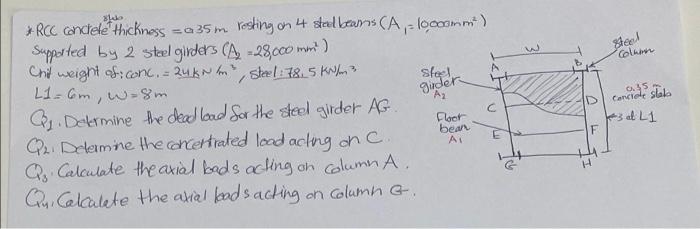 slabs
* RCC conctete thickness = 0.35m resting on 4 steel beams (A₁ = 10,000mm²)
Supported by 2 steel girders (A₂ = 28,000 mm²)
Unit weight of: conc. = 24kN/m³, steel: 78.5 KN/m³
L1 = 6m, W = 8m
Q1. Determine the dead load for the steel girder AG.
Q2. Determine the concentrated load acting on C.
Q3. Calculate the axial loads acting on column A.
Q4. Calculate the axial loads acting on column G.
W
A
B
steel
column
steel
girder
A2
C
D
0.35 m
concrete slab
3 at L1
Floor
beam
A1
E
F
G
H